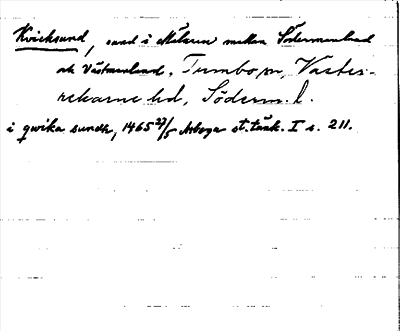 Kvicksund, sund i Mälaren mellan Södermanland
och Västmanland, Tumbo sn, Väster-
rekarne hd, Söderm. l.
i qwika sundh, 1465 27/5 Arboga st. tänk. I s. 211.